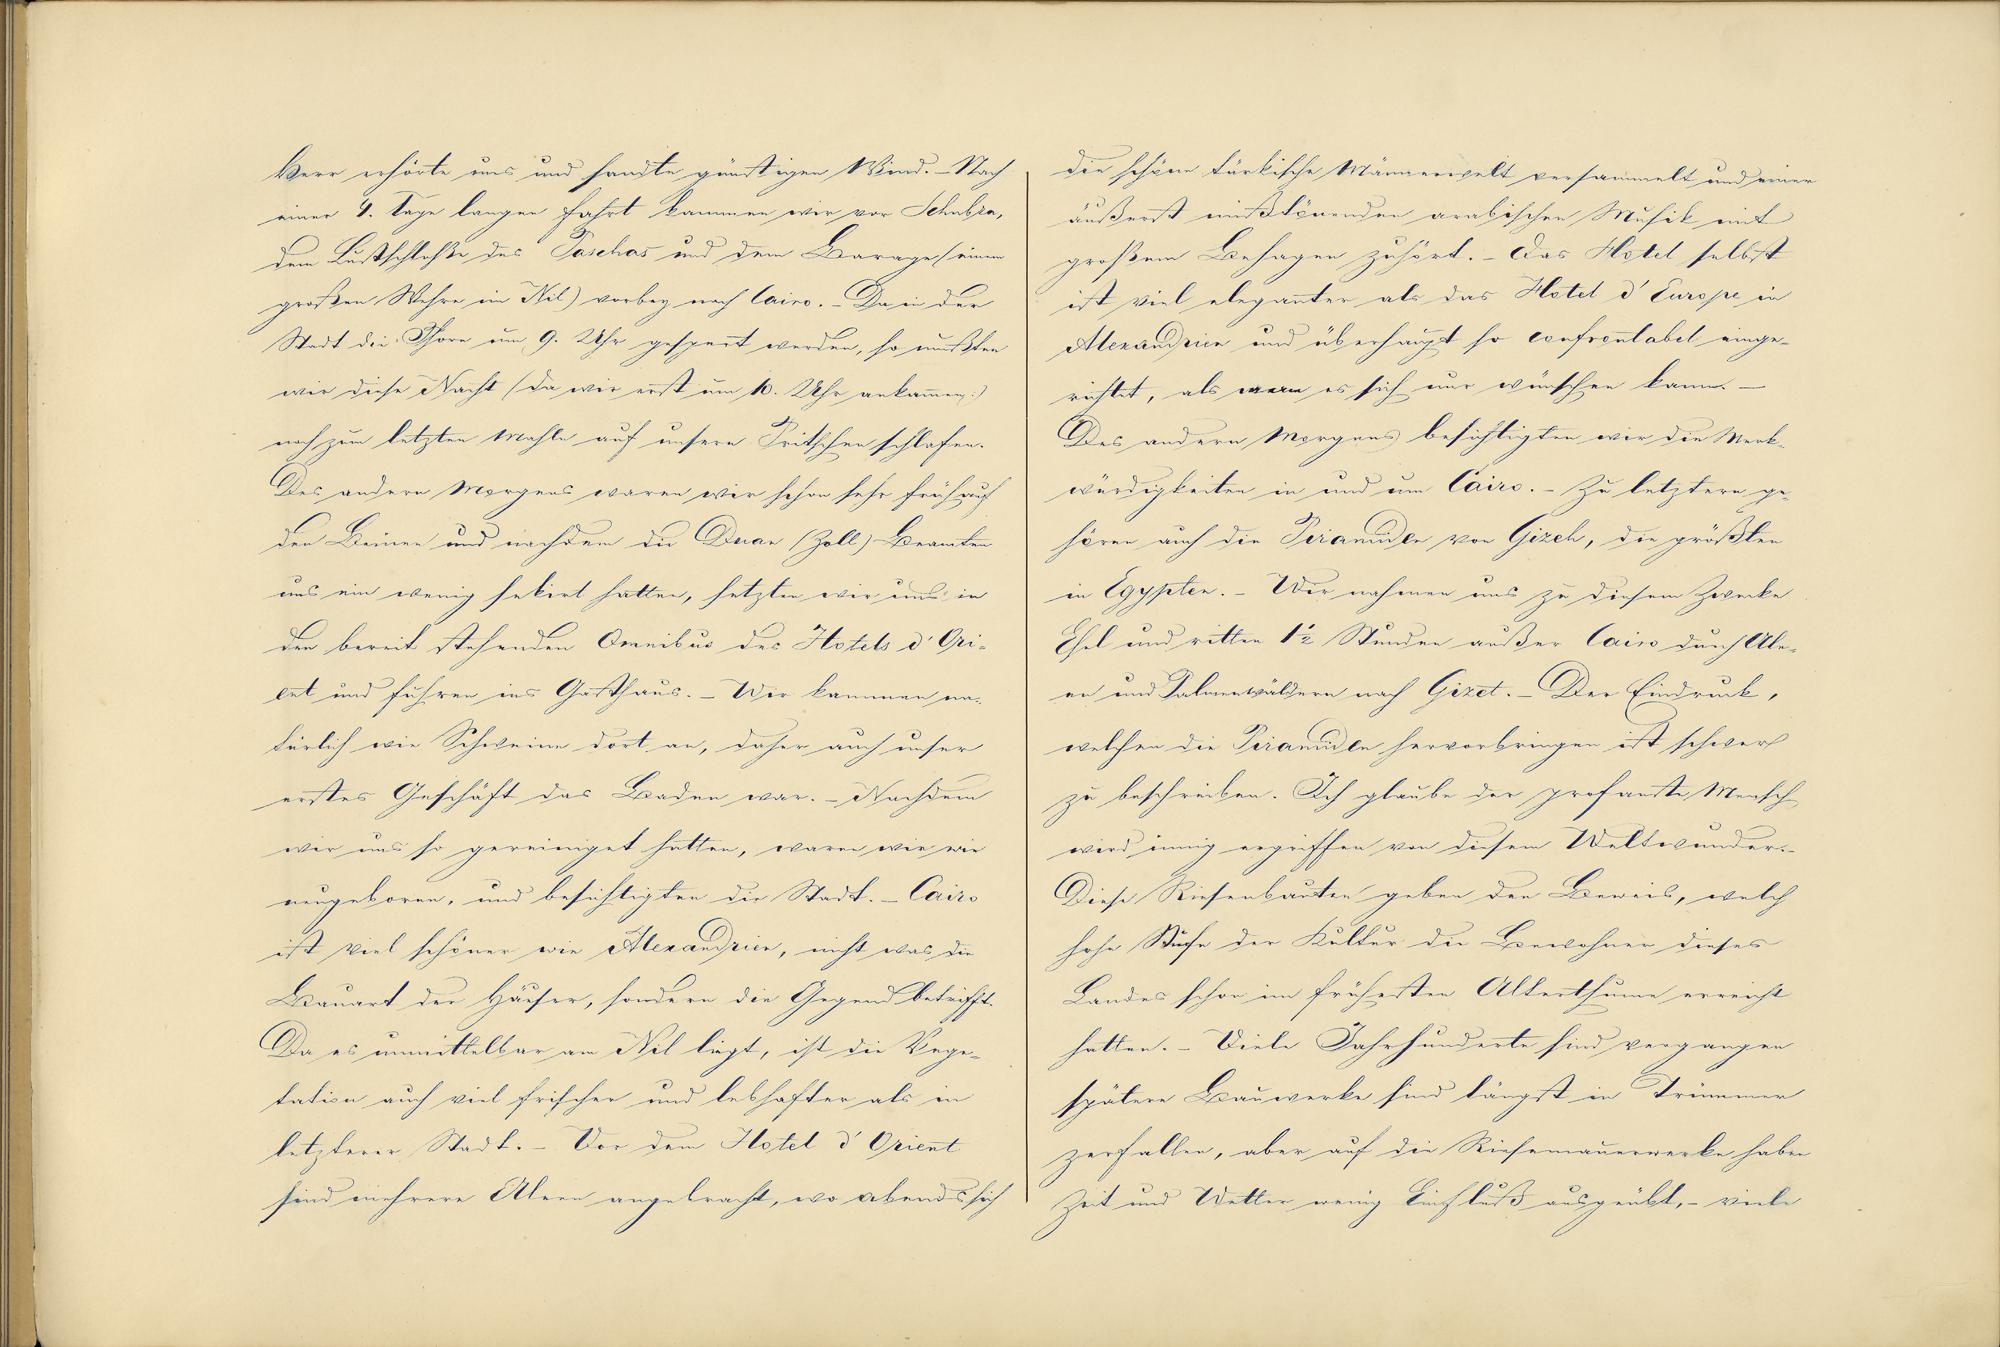 Herr erhörte uns und sandte günstigen Wind. – Nach
einer 4. Tage langen Fahrt kammen wir vor Schubra,
dem Lustschloße des Paschas und dem Barage (einem
großen Wehre im Nil) vorbey nach Cairo. – Da in der
Stadt die Thore um 9. Uhr gesperrt werden, so mußten
wir diese Nacht (da wir erst um 10. Uhr ankamen.)
noch zum letzten Mahle auf unsern Pritschen schlafen.
Des andern Morgens waren wir schon sehr früh auf
den Beinen und nachdem die Duan (Zoll) Beamten
uns ein wenig sekirt hatten, setzten wir uns in
den bereit stehenden Omnibus des Hotels d' Ori-
ent und fuhren ins Gasthaus. – Wir kammen na-
türlich wie Schweine dort an, daher auch unser
erstes Geschäft das Baden war. – Nachdem
wir uns so gereiniget hatten, waren wir wie
neugeboren, und besichtigten die Stadt. – Cairo
ist viel schöner wie Alexandrien, nicht was die
Bauart der Häuser, sondern die Gegend betrifft.
Da es unmittelbar am Nil liegt, ist die Vege-
tation auch viel frischer und lebhafter als in
letzterer Stadt. – Vor dem Hotel d' Orient
sind mehrere Aleen angebracht, wo abends sich
die schöne türkische Männerwelt versammelt und einer
äußerst mißtönenden arabischen Musik mit
großem Behagen zuhört. – Das Hotel selbst
ist viel eleganter als das Hotel d' Europe in
Alexandrien und überhaupt so confrontabel einge-
richtet, als man es sich nur wünschen kann. –
Des andern Morgens besichtigten wir die Merk-
würdigkeiten in und um Cairo. – Zu letztern ge-
hören auch die Piramiden von Gizeh, die größten
in Egypten. – Wir nahmen uns zu diesem Zwecke
Esel und ritten 1½ Stunden außer Cairo durch Ale-
en und Palmenwäldern nach Gizet. – Der Eindruck,
welchen die Piramiden hervorbringen ist schwer
zu beschreiben. Ich glaube der profanste Mensch
wird innig ergriffen von diesem Weltwunder. –
Diese Riesenbauten geben den Beweis, welch
hohe Stufe der Kultur die Bewohner dieses
Landes schon im frühesten Alterthume erreicht
hatten. – Viele Jahrhunderte sind vergangen
spätere Bauwerke sind längst in Trümmer
zerfallen, aber auf die Riesenmauerwerke haben
Zeit und Wetter wenig Einfluß ausgeübt, – viele